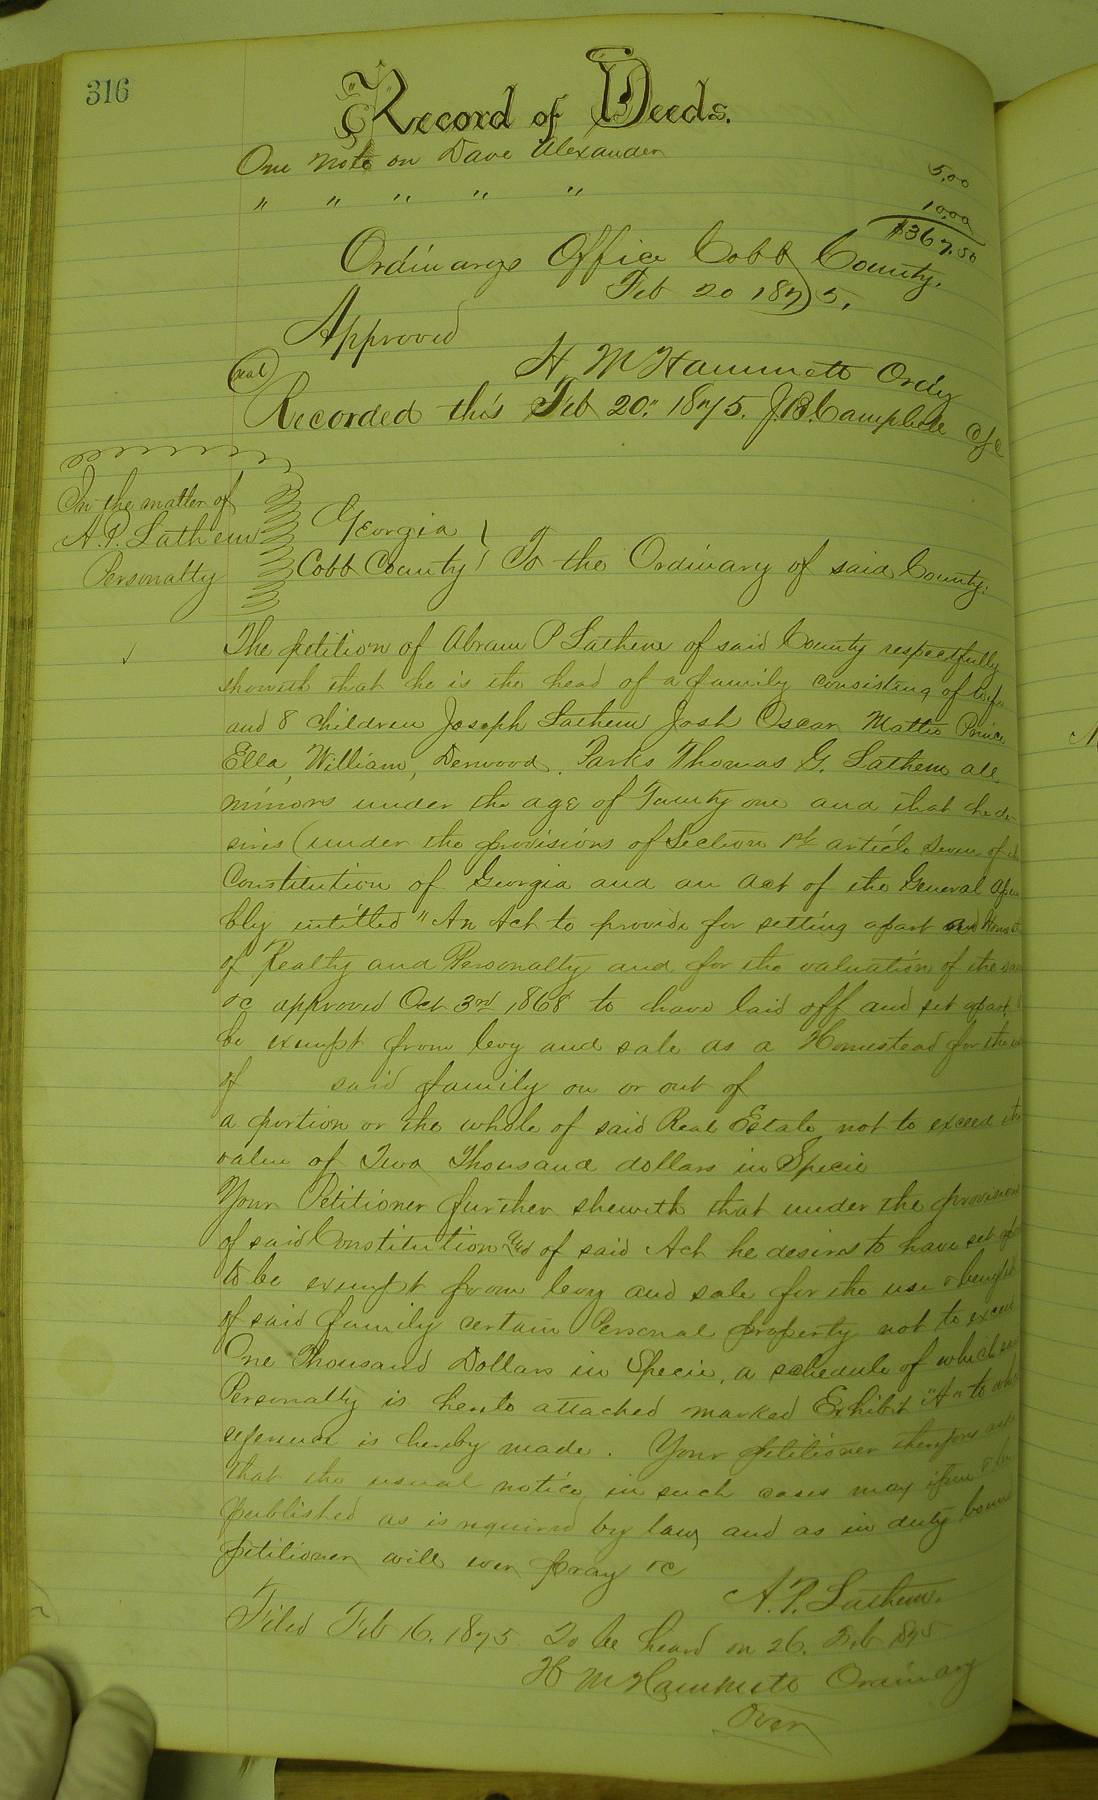 316
Record of Deeds.
One note on Dave Alexander 5.00
" " " " " 10.00
$367.50
Ordinarys Office Cobb County.
Feb 20 1875.
Approved
H M Hammett Ordy
(seal)
Recorded this Feb 20th 1875. J.B. Campbell CSC
In the matter of
A.P. Lathem
Personalty
Georgia
Cobb County } To the Ordinary of said County:
The petition of Abram P Lathem of said County respectfully
sheweth that he is the head of a family consisting of Wife
and 8 children Joseph Lathem Josh Oscar Mattie Prince
Ella, William, Derwood. Parks Thomas G. Lathem all
minors under the age of Twenty one and that he de-
sires (under the provisions of Section 1st article Seven of the
Constitution of Georgia and an act of the General Assem
bly entitled "An Act to provide for setting apart
of Realty and Personalty and for the valuation of the
&c approved Oct 3rd 1868 to have laid off and set apart
be exempt from levy and sale as a Homestead for the use
of said family on or out of
a portion or the whole of said Real Estate not to exceed the
value of Two Thousand dollars in Specie
Your Petitioner further sheweth that under the provision
of said Constitution and of said Act he desires to have set
to be exempt from levy and sale for the use & benefit
of said family certain Personal property not to exceed
One Thousand Dollars in Specie, a schedule of which
Personalty is hereto attached marked Exhibit "A" to
reference is hereby made. Your petitioner therefore
that the usual notice in such cases may
published as is required by law, and as in duty bound
petitioner will ever pray &c
A.P. Lathem.
Filed Feb 16. 1875 To be heard on 26. Feb 1875
H M Hammett Ordinary
Over